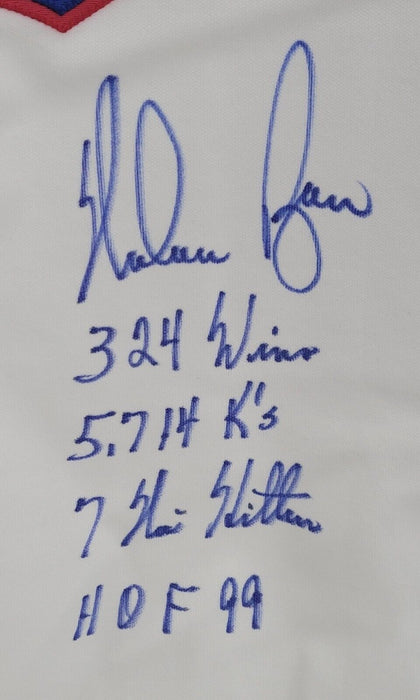 Nolan Ryan
324 Wins
5,714 K's
7 No Hitters
HOF 99